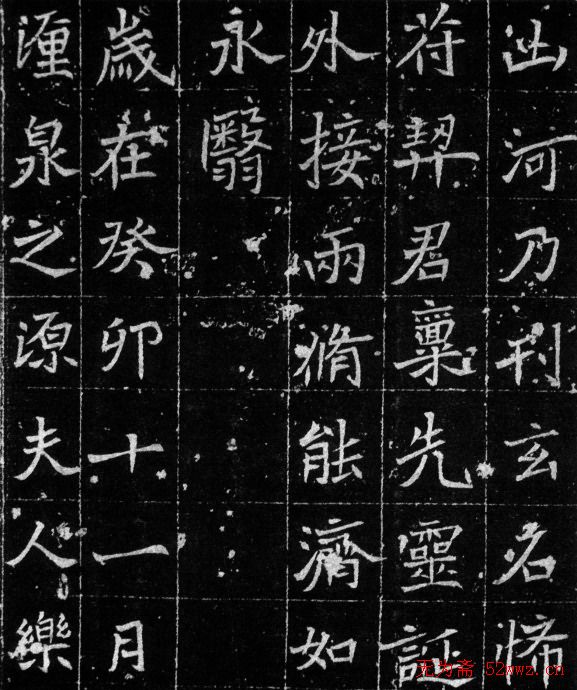 河乃刊玄名悕
苻契君稟先靈誕
外接兩脩能濟如
永翳
歲在癸卯十一月
泉之源夫人樂
无为斋 52wwz.cn